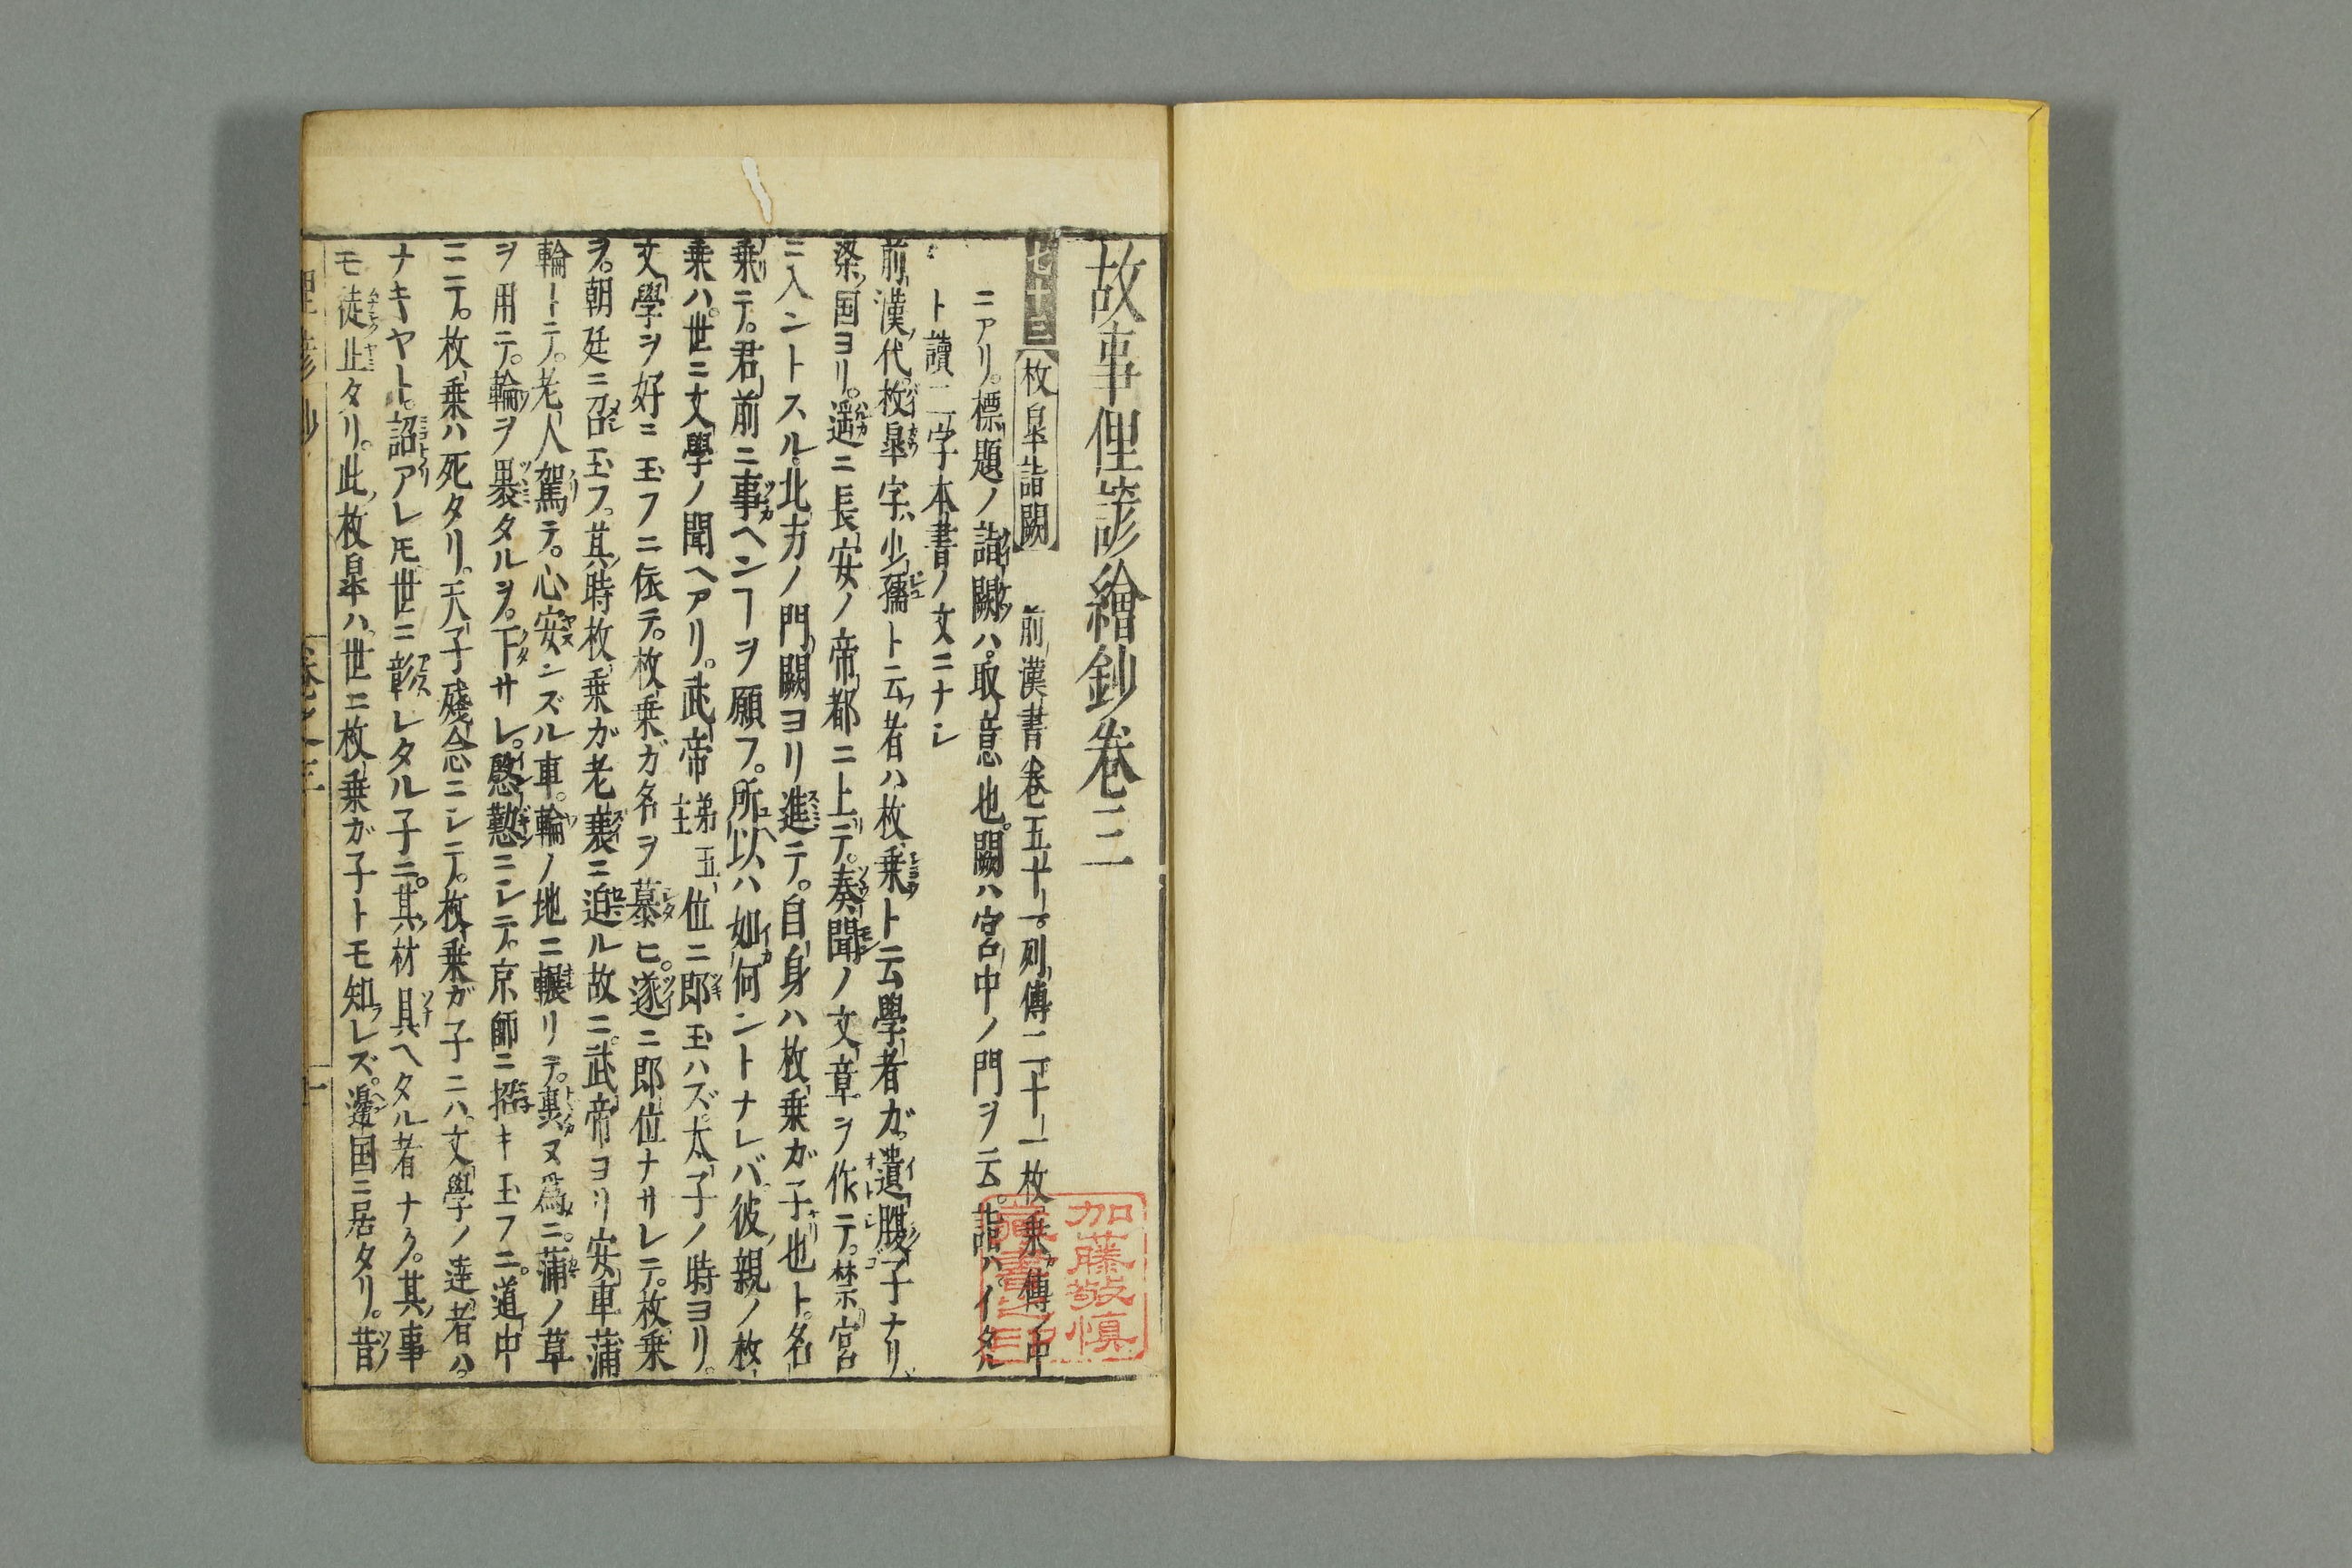 故事俚諺繪鈔巻三
七十三 枚皐詣闕 前漢書巻五十一列傳二十一枚乗傳ノ中
ニアリ。標題ノ詣闕ハ。取意也。闕ハ宮中ノ門ヲ云。詣ハイタル
ト讀。二字本書ノ文ニナシ
前漢代。枚皐字ハ少孺ト云者ハ。枚乗ト云學者ガ。遺腹子ナリ。
梁国ヨリ。遥ニ長安ノ帝都ニ上テ。奏聞ノ文章ヲ作テ。禁宮
ニ入ントスル。北方ノ門闕ヨリ進テ。自身ハ枚乗ガ子也ト。名
乗テ。君前ニ事ヘンヿヲ願フ。所以ハ如何ントナレバ。彼親ノ枚
乗ハ。世ニ文學ノ聞ヘアリ。武帝未王位ニ即玉ハズ。太子ノ時ヨリ。
文學ヲ好ミ玉フニ依テ。枚乗ガ名ヲ慕ヒ。遂ニ即位ナサレテ。枚乗
ヲ。朝廷ニ召玉フ。其時枚乗ガ老衰ニ迫ル故ニ。武帝ヨリ安車蒲
輪トニテ。老人駕テ。心安ンズル車。輪ノ地ニ輾リテ。裏ヌ為ニ。蒲ノ草
ヲ用テ。輪ヲ裹タルヲ。下サレ。慇懃ニシテ。京師ニ招キ玉フニ。道中
ニテ。枚乗ハ死タリ。天子殘念ニシテ。枚乗ガ子ニハ。文學ノ達者ハ。
ナキヤト。詔アレ𪜈世ニ彰レタル子ニ。其材具ヘタル者ナク。其事
モ徒止タリ。此枚皐ハ世ニ枚乗ガ子トモ知レズ。邊国ニ居タリ。昔
俚諺抄 巻之三 一
加藤敬慎
蔵書之印